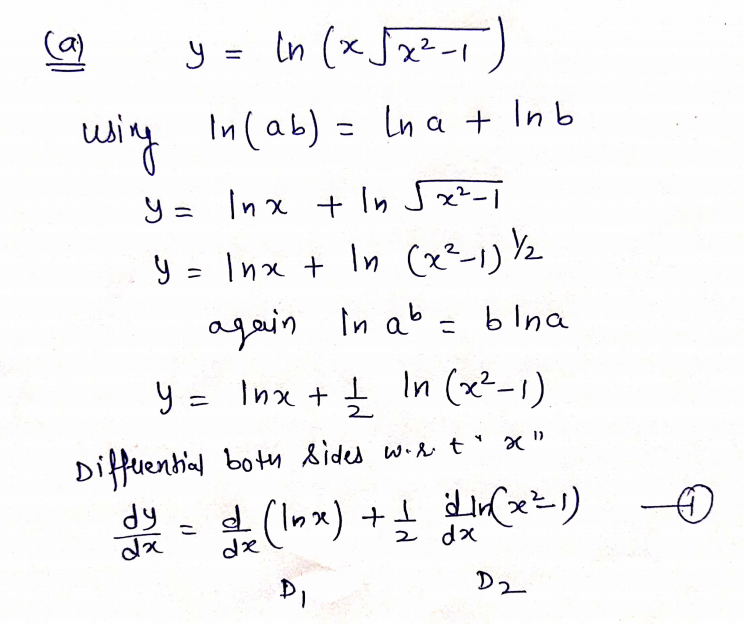 (a) y = ln (x √(x²-1))
using ln(ab) = ln a + ln b
y = ln x + ln √(x²-1)
y = ln x + ln (x²-1)^(1/2)
again ln a^b = b ln a
y = ln x + 1/2 ln (x²-1)
Diffuential both sides w.r.t "x"
dy/dx = d/dx (ln x) + 1/2 d ln(x²-1)/dx —(1)
D₁ D₂